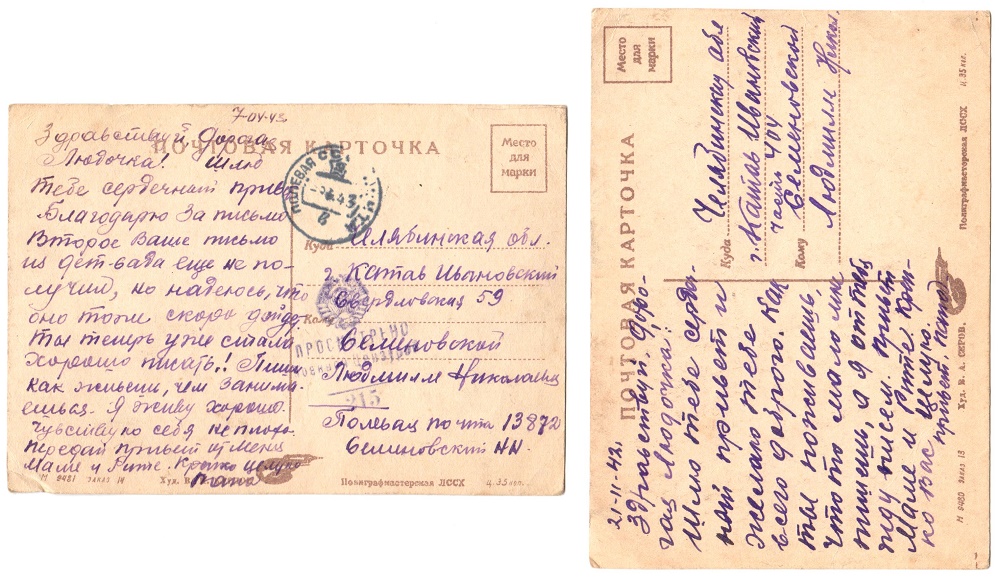 7-04-43
Здравствуй Дорога
Любочка! Шлю
ПОЧТОВАЯ КАРТОЧКА
Место
для
марки
Тебе сердечный приве
Благодарю за письмо
Второе Ваше письмо
из дет-сада еще не по-
лучил, но надеюсь, что
оно тоже скоро дойде
Ты теперь уже стала
хорошо писать! Пиши
как живеш, чем занима-
ешься. Я живу хорошо.
Чувствую себя неплохо.
Передай привет
Маме и Рите. Крепко целую
Папа
ПОЛЕВАЯ
Куда Челябинская обл.
г. Катав Ивановский
Свердловская 59
Кому
Семеновской
Людмилле Николаевн
ПРОСМОТРЕНО
215
Полевая почта 13872
Семеновский НН.
М 9481 ЗАКАЗ 14
Худ. В.
Полиграфмастерская ЛССХ
Ц. 35 коп.
ПОЧТОВАЯ КАРТОЧКА
Место
для
марки
Куда Челябинская обл
г. Катав Ивановский
часть 404
Кому Семеновской
Людмилле Никол
21-11-42.
Здравствуй. Доро-
гая Людочка!
Шлю тебе сердеч
ный привет и
желаю тебе
всего доброго. Как
ты поживаешь,
что то мало мне
пишеш, а я от тебя
жду писем. Привет
Маме и Рите. Креп-
ко Вас целую.
привет, папа
М 9480 ЗАКАЗ 13
Худ. В. А. СЕРОВ.
Полиграфмастерская ЛССХ
Ц. 35 коп.